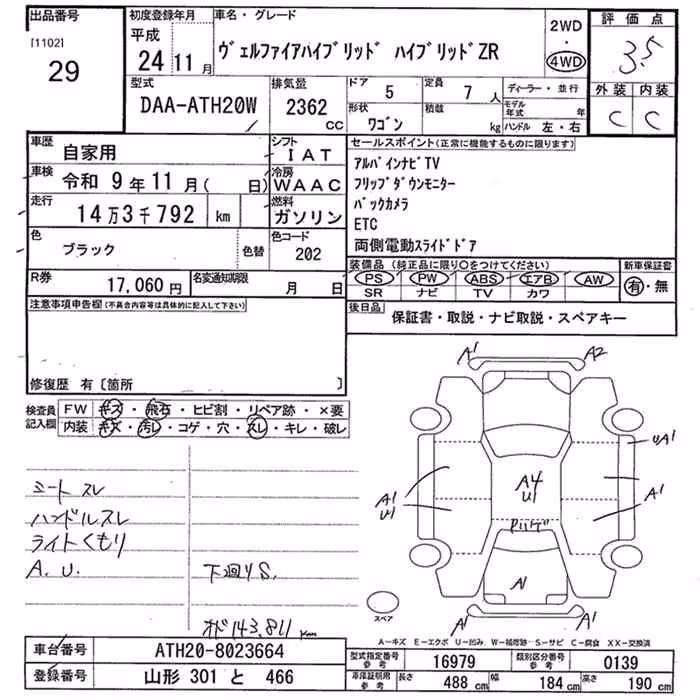 出品番号
[1102]
29
初度登録年月
平成
24 11 月
車名・グレード
ヴェルファイアハイブリッド ハイブリッドZR
2WD
・
4WD
評価点
3.5
外装 内装
C C
型式
DAA-ATH20W
排気量
2362
CC
ドア
5
定員
7 人
形状
ワゴン
積載
kg
ディーラー・並行
モデル年式 年
ハンドル 左・右
車歴
自家用
シフト
IAT
車検
令和 9年11月( 日)
冷房
WAAC
走行
14万3千792 km
燃料
ガソリン
色
ブラック
色替
色コード
202
R券
17,060円
名変通知期限
月 日
セールスポイント(正常に機能するものに限ります)
アルパインナビTV
フリップダウンモニター
バックカメラ
ETC
両側電動スライドドア
装備品(純正品に限り○をつけてください)
PS PW ABS エアB AW
SR ナビ TV カワ
新車保証書
有・無
後日品
保証書・取説・ナビ取説・スペアキー
注意事項申告欄(不具合内容等は具体的に記入して下さい)
修復歴 有〔箇所 〕
検査員記入欄
FW キズ・飛石・ヒビ割・リペア跡・×要
内装 キズ・汚レ・コゲ・穴・スレ・キレ・破レ
シート スレ
ハンドルスレ
ライトくもり
A. U.
下廻りS.
オド143,811 km
A1 A2
UA1
A4
U1
A1
U1
A1
A1
A1 A1
スペア
A-キズ E-エクボ U-凹み W-補修跡 S-サビ C-腐食 XX-交換済
車台番号
ATH20-8023664
登録番号
山形 301 と 466
型式指定番号
参考
16979
類別区分番号
参考
0139
車庫証明用
参考
長さ 488 cm
幅 184 cm
高さ 190 cm